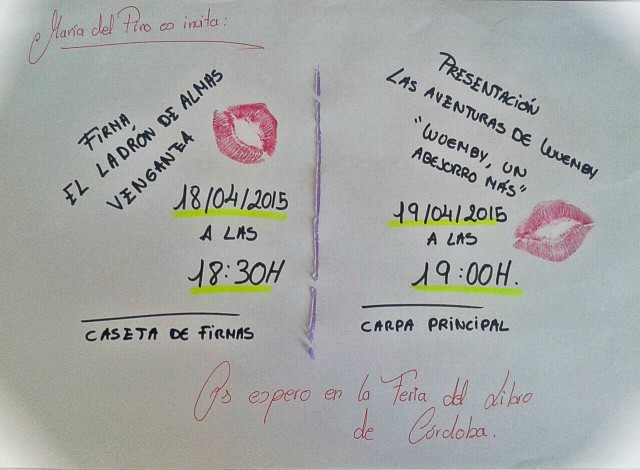 María del Pino os invita:
FIRMA
EL LADRÓN DE ALMAS
VENGANZA
18/04/2015
A LAS
18:30H
CASETA DE FIRMAS
PRESENTACIÓN
LAS AVENTURAS DE WUENBY
"WUENBY, UN
ABEJORRO MÁS"
19/04/2015
A LAS
19:00H.
CARPA PRINCIPAL
Os espero en la Feria del Libro
de Córdoba.